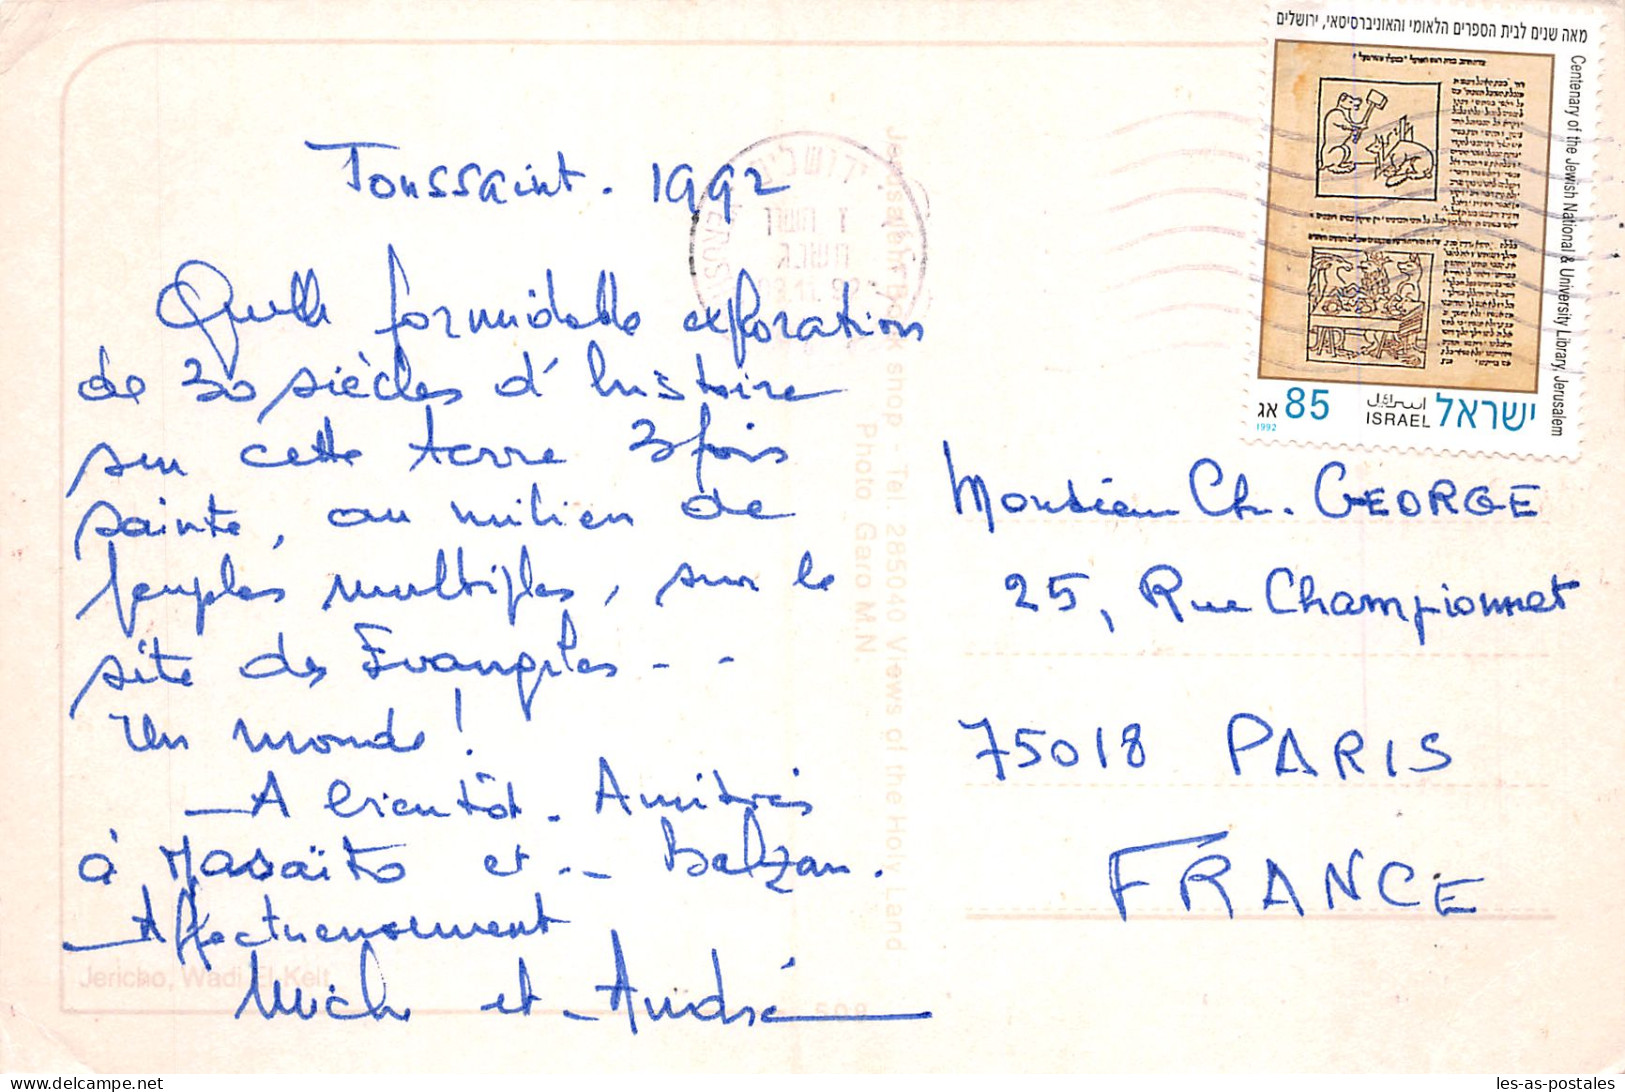 Toussaint. 1992
Quelle formidable exploration
de 30 siècles d'histoire
sur cette terre 3 fois
sainte, au milieu de
peuples multiples, sur le
site des Evangiles - -
Un monde !
A bientôt. Amitiés
à Masaïto et .- Balzan.
Affectueusement
Mich et André
Jericho, Wadi El Kelt
508
Jerusalem Book shop Tel. 285040 Views of the Holy Land
Photo Garo M.N.
ירושלים
JERUSALEM
מאה שנים לבית הספרים הלאומי והאוניברסיטאי, ירושלים
Centenary of the Jewish National & University Library, Jerusalem
אג 85
1992
اسرائيل
ISRAEL
ישראל
Monsieur Ch. GEORGE
25, Rue Championnet
75018 PARIS
FRANCE
les-as-postales